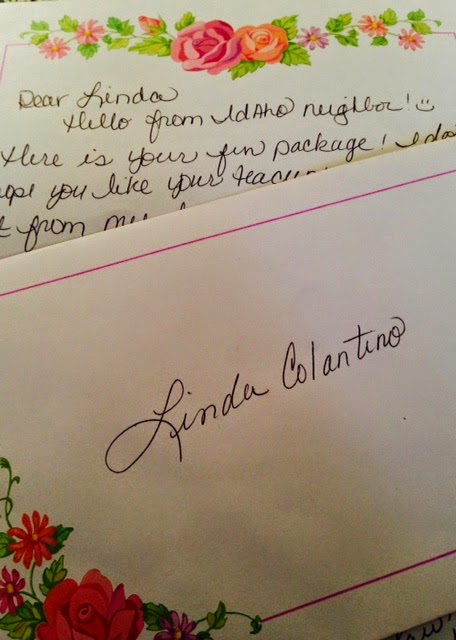 Dear Linda
Hello from Idaho neighbor! ☺
Here is your fun package! I do
hope you like your teacup
from my
Linda Colantino